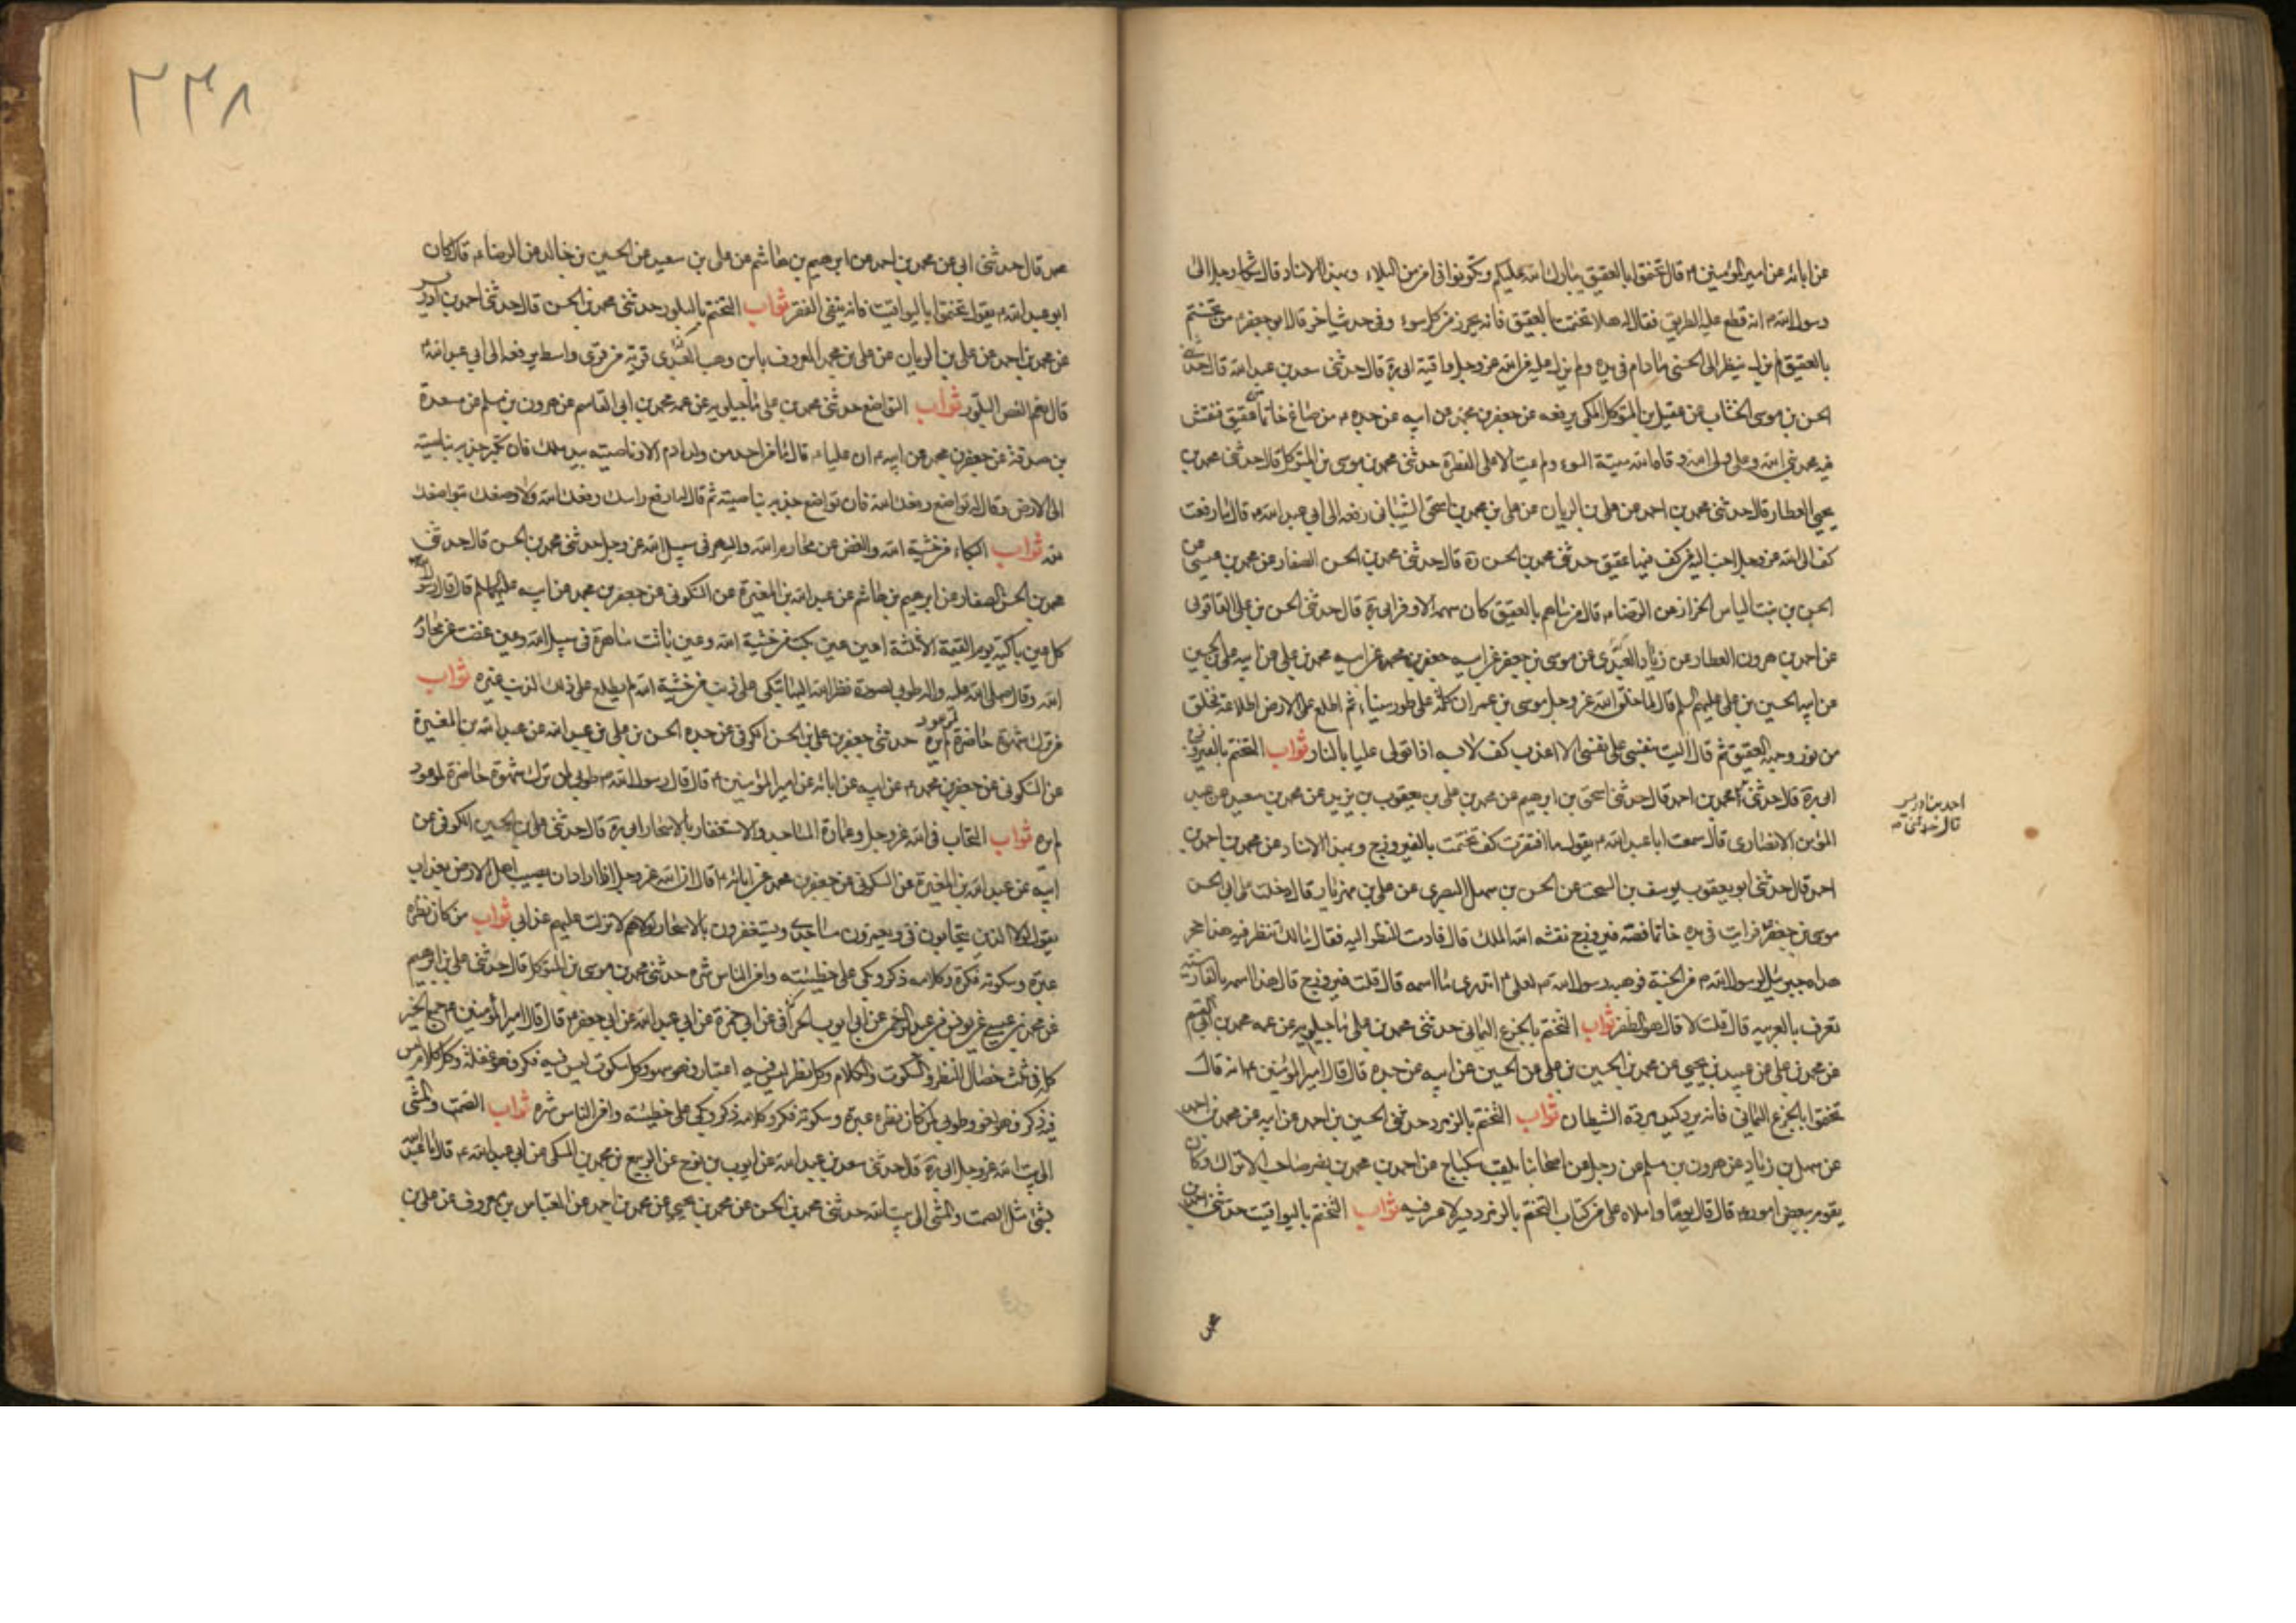 عن ابائه عن امير المؤمنين ع قال تختموا بالعقيق يبارك الله عليكم وتكونوا في امن من البلاء وبهذا الاسناد قال شكا رجل الى
رسول الله ص انه قطع عليه الطريق فقال له هلا تختمت بالعقيق فانه يحرز من كل سوء وفي حديث اخر قال ابو جعفر ع من تختم
بالعقيق لم يزل ينظر الى الحسنى ما دام في يده ولم يزل عليه من الله عز وجل واقية ابي ره قال حدثني سعد بن عبد الله قال حدثني
الحسن بن موسى الخشاب عن عقيل بن المتوكل المكي يرفعه عن جعفر بن محمد عن ابيه عن جده ع من صاغ خاتما عقيق فنقش
فيه محمد نبي الله وعلي ولي الله وقاه الله ميتة السوء ولم يمت الا على الفطرة حدثني محمد بن موسى بن المتوكل قال حدثني محمد بن
يحيى العطار قال حدثني محمد بن احمد عن علي بن الريان عن علي بن محمد بن اسحق الشيباني رفعه الى ابي عبد الله ع قال ما رفعت
كف الى الله عز وجل احب اليه من كف فيها عقيق حدثني محمد بن الحسن ره قال حدثني محمد بن الحسن الصفار عن محمد بن عيسى عن
الحسن بن بنت الياس الخزاز عن الرضا ع قال من ساهم بالعقيق كان سهمه الاوفر ابي ره قال حدثني الحسن بن علي العاقولي
عن احمد بن هرون العطار عن زياد العبدي عن موسى بن جعفر عن ابيه جعفر بن محمد عن ابيه محمد بن علي عن ابيه علي بن الحسين
عن ابيه الحسين بن علي عليهم السلم قال لما خلق الله عز وجل موسى بن عمران كلمه على طور سيناء ثم اطلع على الارض اطلاعة فخلق
من نور وجهه العقيق ثم قال اليت بنفسي على نفسي الا اعذب كف لابسه اذا تولى عليا بالنار ثواب التختم بالفيروزج
ابي ره قال حدثني محمد بن احمد قال حدثني اسحق بن ابرهيم عن محمد بن علي بن يعقوب بن يزيد عن محمد بن سعيد عن عبد
احمد بن ادريس
قال حدثني صح
المؤمن الانصاري قال سمعت ابا عبد الله ع يقول ما افتقرت كف تختمت بالفيروزج وبهذا الاسناد عن محمد بن احمد بن
احمد قال حدثني ابو يعقوب يوسف بن السخت عن الحسن بن سهل البصري عن علي بن مهزيار قال دخلت على ابي الحسن
موسى بن جعفر ع فرايت في يده خاتما فصه فيروزج نقشه الله الملك قال فادمت النظر اليه فقال ما لك تنظر فيه هذا حجر
اهداه جبرئيل لرسول الله ص من الجنة فوهبه رسول الله ص لعلي ع اتدري ما اسمه قال قلت فيروزج قال هذا اسمه بالفارسية
تعرف بالعربيه قال قلت لا قال هو الظفر ثواب التختم بالجزع اليماني حدثني محمد بن علي ماجيلويه عن عمه محمد بن ابي القسم
عن محمد بن علي عن عبيد بن يحيى عن محمد بن الحسين بن علي بن الحسين عن ابيه عن جده قال قال امير المؤمنين ع انه قال
تختموا بالجزع اليماني فانه يرد كيد مردة الشيطان ثواب التختم بالزمرد حدثني الحسين بن احمد عن ابيه عن محمد بن احمد
عن سهل بن زياد عن هرون بن مسلم عن رجل من اصحابنا يلقب سكباج عن احمد بن محمد بن نصر صاحب الانزال وكان
يقوم ببعض امور ع قال قال يوما واملاه علي من كتاب التختم بالزمرد يسر لا عسر فيه ثواب التختم باليواقيت حدثني احمد بن
٢٣٨
محمد قال حدثني ابي عن محمد بن احمد عن ابرهيم بن هاشم عن علي بن سعيد عن الحسين بن خالد عن الرضا ع قال كان
ابو عبد الله ع يقول تختموا باليواقيت فانه ينفي الفقر ثواب التختم بالبلور حدثني محمد بن الحسن قال حدثني احمد بن ادريس
عن محمد بن احمد عن علي بن الريان عن علي بن محمد المعروف بابن وهب العبدي قرية من قرى واسط يرفعه الى ابي عبد الله ع
قال نعم الفص البلور ثواب التواضع حدثني محمد بن علي ماجيلويه عن عمه محمد بن ابي القاسم عن هرون بن مسلم عن مسعدة
بن صدقة عن جعفر بن محمد عن ابيه ع ان عليا ع قال ما من احد من ولد ادم الا وناصيته بيد ملك فان تكبر جذبه بناصيته
الى الارض وقال له تواضع وضعك الله فان تواضع جذبه بناصيته ثم قال له ارفع راسك رفعك الله ولا وضعك بتواضعك
لله ثواب البكاء من خشية الله والغض عن محارم الله والسهر في سبيل الله عز وجل حدثني محمد بن الحسن قال حدثني
محمد بن الحسن الصفار عن ابرهيم بن هاشم عن عبد الله بن المغيرة عن السكوني عن جعفر بن محمد عن ابيه عليهما السلم قال قال رسول الله ص
كل عين باكية يوم القيمة الا ثلثة اعين عين بكت من خشية الله وعين باتت ساهرة في سبيل الله وعين غضت عن محارم
الله وقال صلى الله عليه واله طوبى لصورة نظر الله اليها تبكي على ذنب من خشية الله لم يطلع على ذلك الذنب غيره ثواب
من ترك شهوة حاضرة لموعود لم يره حدثني جعفر بن علي بن الحسن الكوفي عن جده الحسن بن علي بن عبد الله عن عبد الله بن المغيرة
عن السكوني عن جعفر بن محمد ع عن ابيه عن ابائه عن امير المؤمنين ع قال قال رسول الله ص طوبى لمن ترك شهوة حاضرة لموعود
لم يره ثواب التحاب في الله عز وجل وعمارة المساجد والاستغفار بالاسحار ابي ره قال حدثني علي بن الحسين الكوفي عن
ابيه عن عبد الله بن المغيرة عن السكوني عن جعفر بن محمد عن ابائه ع قال ان الله عز وجل اذا اراد ان يصيب اهل الارض بعذاب
يقول لولا الذين يتحابون في ويعمرون مساجدي ويستغفرون بالاسحار لولاهم لانزلت عليهم عذابي ثواب من كان نظره
عبرة وسكوته فكرة وكلامه ذكر وبكى على خطيئته وامن الناس شره حدثني محمد بن موسى بن المتوكل قال حدثني علي بن ابرهيم
عن محمد بن عيسى عن يونس بن عبد الرحمن عن ابي ايوب الخزاز عن ابي حمزة عن ابي عبد الله عن ابي جعفر ع قال قال امير المؤمنين ع جمع الخير
كله في ثلث خصال النظر والسكوت والكلام وكل نظر ليس فيه اعتبار فهو سهو وكل سكوت ليس فيه فكر فهو غفلة وكل كلام ليس
فيه ذكر فهو لغو وطوبى لمن كان نظره عبرة وسكوته فكر وكلامه ذكر وبكى على خطيئته وامن الناس شره ثواب الصمت والمشي
الى بيت الله عز وجل ابي ره قال حدثني سعد بن عبد الله عن ايوب بن نوح عن الربيع بن محمد بن المسلي عن ابي عبد الله ع قال ما عبد الله
بشئ مثل الصمت والمشي الى بيت الله حدثني محمد بن الحسن عن محمد بن يحيى عن محمد بن احمد عن العباس بن معروف عن علي بن